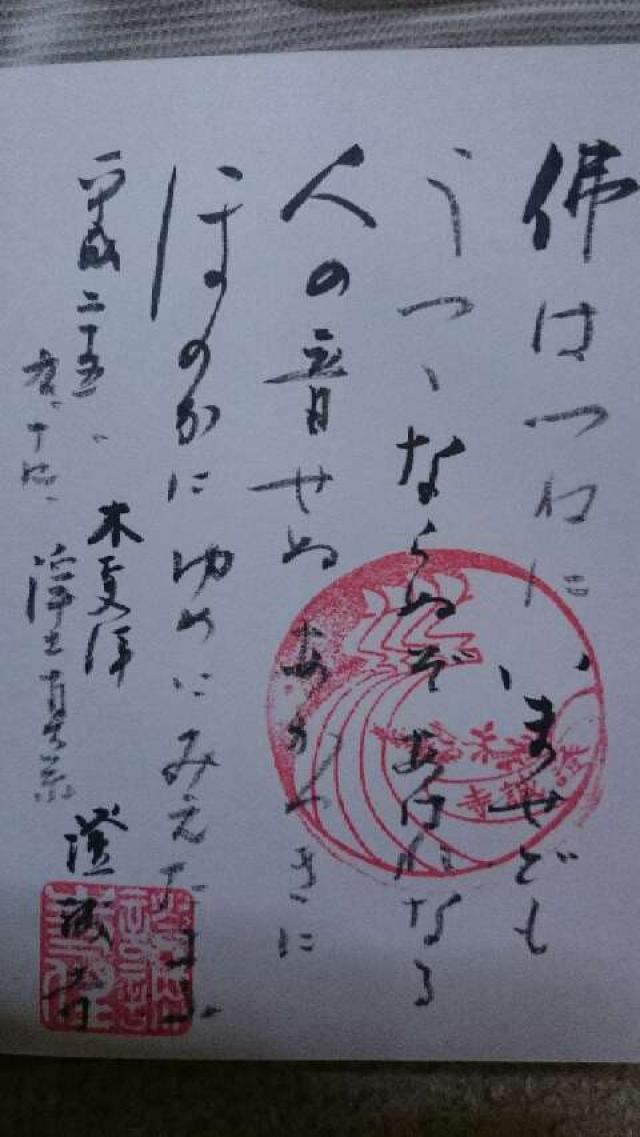 佛はつねにいませども
うつゝならぬぞあはれなる
人の音せぬあかつきに
ほのかにゆめにみえたまふ
平成二十五、
木更津
浄土真宗
澄誠寺